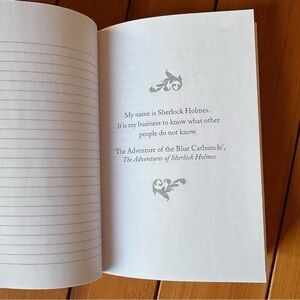 My name is Sherlock Holmes.
It is my business to know what other
people do not know.
'The Adventure of the Blue Carbuncle',
The Adventures of Sherlock Holmes